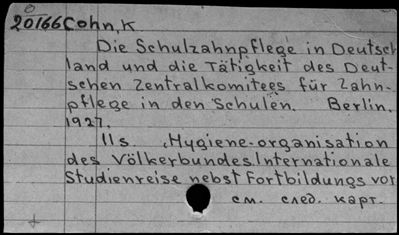 20166 Cohn, K
Die Schulzahnpflege in Deutsch
land und die Tätigkeit des Deut-
schen Zentralkomitees für Zahn-
pflege in den Schulen. Berlin.
1927.
11s. „Hygiene-organisation
des Völkerbundes Internationale
Studienreise nebst Fortbildungs vor
см. след. карт.